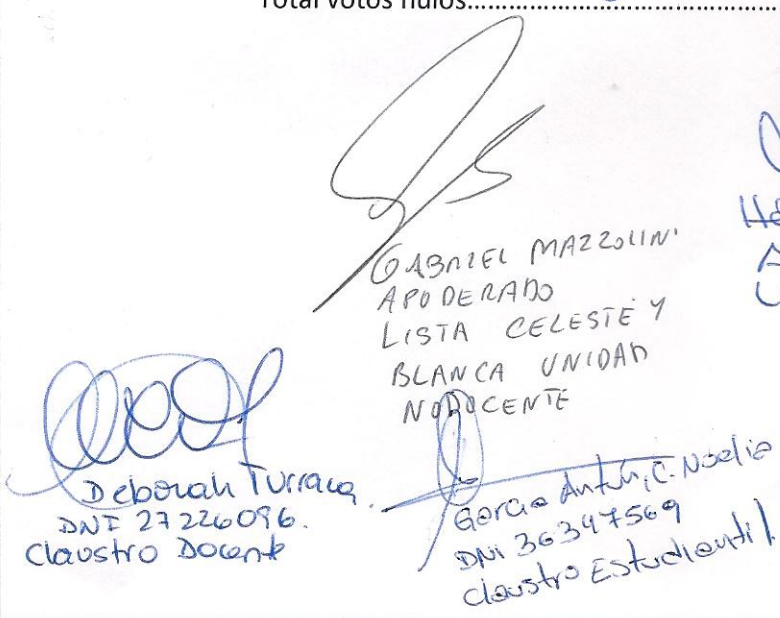 Total votos nulos
GABRIEL MAZZOLINI
APODERADO
LISTA CELESTE Y
BLANCA UNIDAD
NODOCENTE
Deborah Turraca.
DNI 27226096.
Claustro Docente
Garcia Antun, C. Noelia
DNI 36347569
Claustro Estudiantil